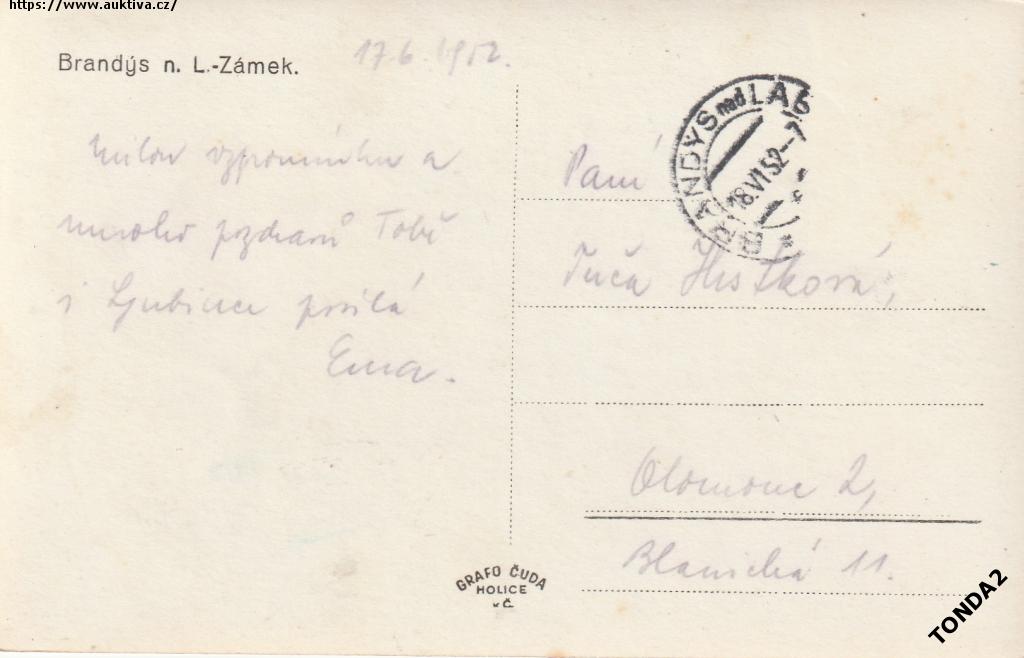 https://www.auktiva.cz/
Brandýs n. L.-Zámek.
17.6.1952.
Milou vzpomínku a
mnoho pozdravů Tobě
i Ljubince posílá
Ema.
BRANDÝS nad LAB
18.VI.52-7
Paní
Hrstková,
Olomouc 2,
Blanická 11.
GRAFO ČUDA
HOLICE
v Č.
TONDA2